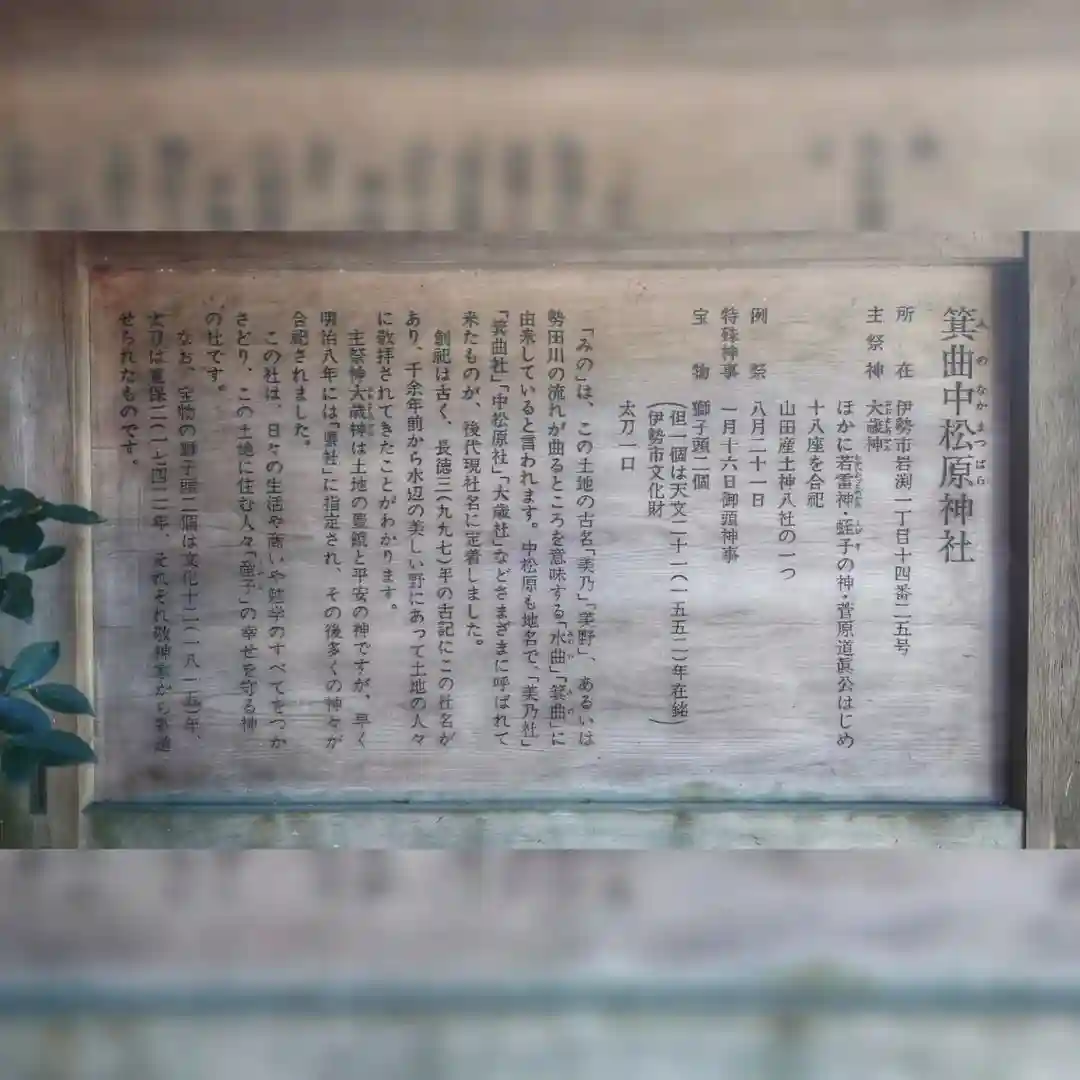 箕曲中松原神社
みのなかまつばら
所在 伊勢市岩渕一丁目十四番二五号
主祭神 大歳神
ほかに若雷神・蛭子の神・菅原道眞公はじめ
十八座を合祀
山田産土神八社の一つ
例祭 八月二十一日
特殊神事 一月十六日御頭神事
宝物 獅子頭二個
(但一個は天文二十一(一五五二)年在銘)
伊勢市文化財
太刀一口
「みの」は、この土地の古名「美乃」「美野」、あるいは
勢田川の流れが曲るところを意味する「水曲」「箕曲」に
由来していると言われます。中松原も地名で、「美乃社」
「箕曲社」「中松原社」「大歳社」などさまざまに呼ばれて
来たものが、後代現社名に定着しました。
創祀は古く、長徳三(九九七)年の古記にこの社名が
あり、千余年前から水辺の美しい野にあって土地の人々
に敬拝されてきたことがわかります。
主祭神大歳神は土地の豊饒と平安の神ですが、早く
明治八年には「県社」に指定され、その後多くの神々が
合祀されました。
この社は、日々の生活や商いや勉学のすべてをつか
さどり、この土地に住む人々「産子」の幸せを守る神
の社です。
なお、宝物の獅子頭二個は文化十二(一八一五)年、
太刀は享保二(一七四二)年、それぞれ敬神家から寄進
せられたものです。